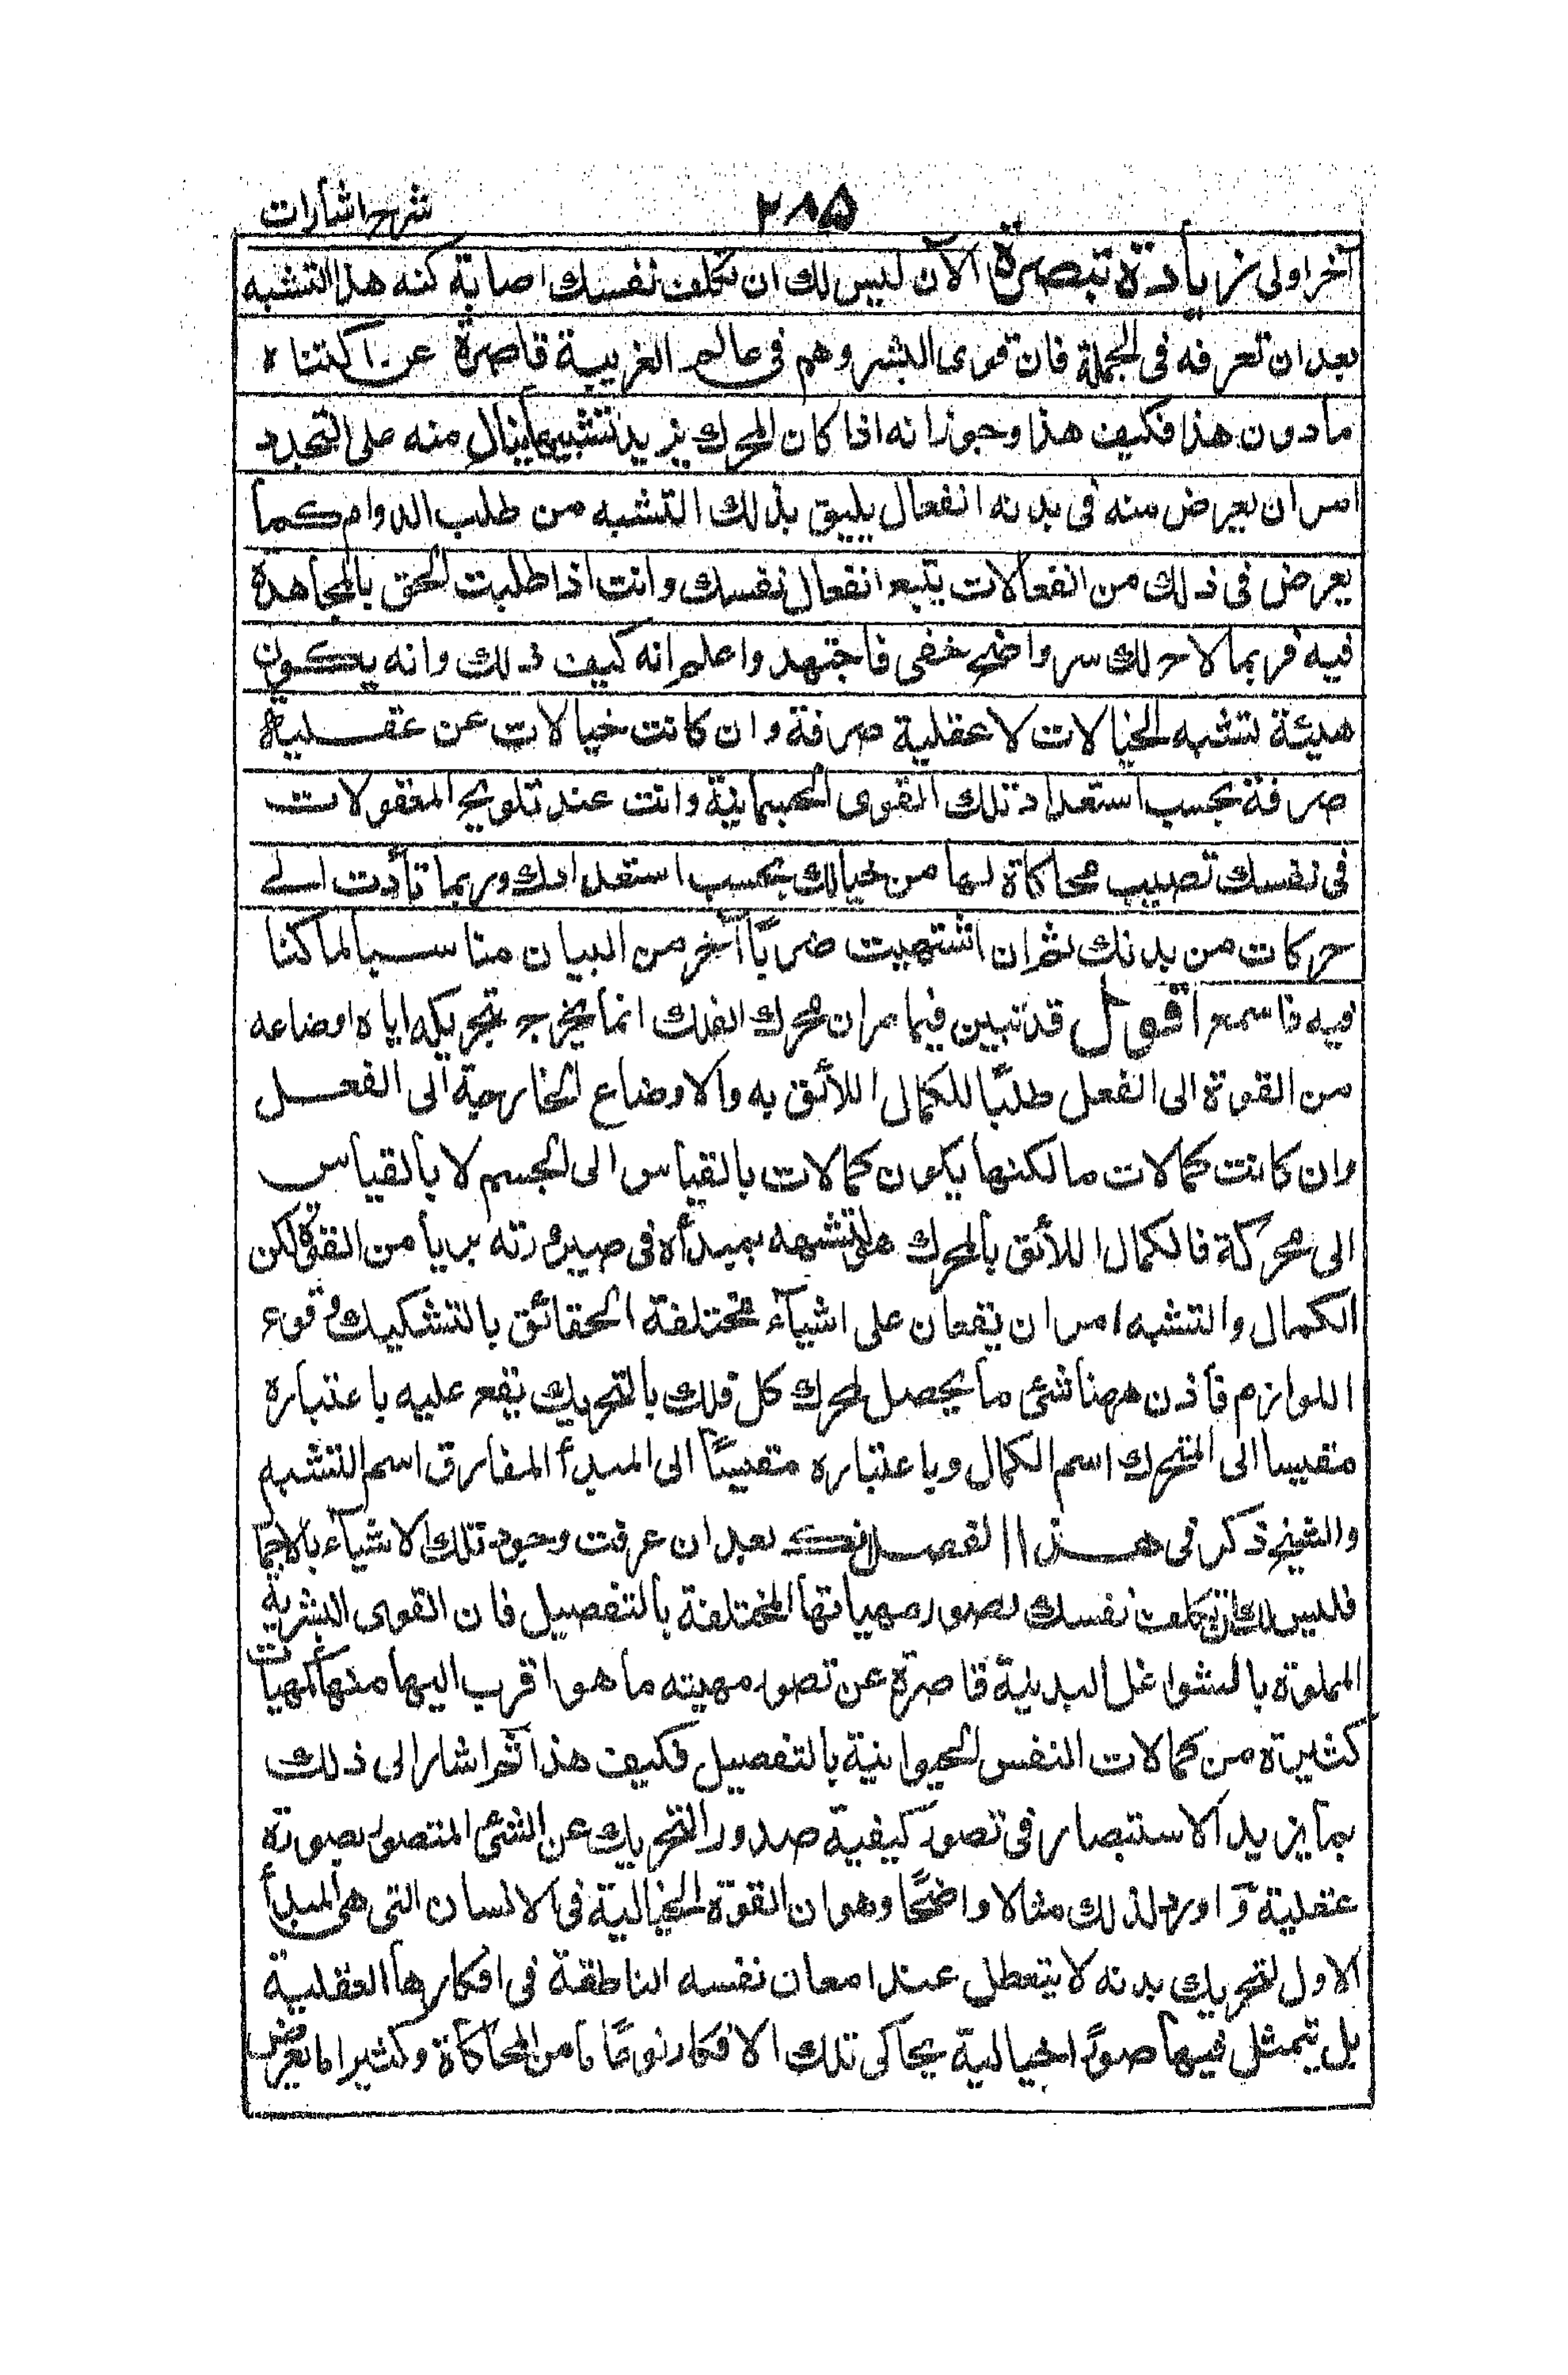 شرح اشارات
٢٨٥
آخر اولى زيادة تبصرة الآن ليس لك ان تكلف نفسك اصابة كنه هذا التشبه
بعد ان تعرفه فى الجملة فان قوى البشر وهم فى عالم الغربية قاصرة عن اكتناه
ما دون هذا فكيف هذا وجوز انه اذا كان المحرك يريد تشبيها ينال منه على التجدد
امر ان يعرض منه فى بدنه انفعال يليق بذلك التشبه من طلب الدوام كما
يعرض فى ذلك من انفعالات يتبع انفعال نفسك وانت اذا طلبت الحق بالمجاهدة
فيه فربما لاح لك سر واضح خفى فاجتهد واعلم انه كيف ذلك وانه يكون
هيئة تتشبه الخيالات لا عقلية صرفة وان كانت خيالات عن عقلية
صرفة بحسب استعداد تلك القوى الجسمانية وانت عند تلويح المعقولات
فى نفسك تصيب محاكاة لها من خيالك بحسب استعدادك وربما تأدت الے
حركات من بدنك ثم ان اشتهيت ضربًا آخر من البيان مناسبا لما كنا
فيه فاسمع اقول قد تبين فيما مر ان محرك الفلك انما يخرج بتحريكه اياه اوضاعه
من القوة الى الفعل طلبًا للكمال اللائق به والاوضاع الخارجية الى الفعل
وان كانت كمالات ما لكنها يكون كمالات بالقياس الى الجسم لا بالقياس
الى محركة فالكمال اللائق بالمحرك هو تشبهه بمبدأه فى صيرورته بريا من القوة لكن
الكمال والتشبه امران يقعان على اشياء مختلفة الحقائق بالتشكيك وقوع
اللوازم فاذن ههنا شئ ما يحصل لمحرك كل فلك بالتحريك يقع عليه باعتباره
مقيسا الى المتحرك اسم الكمال وباعتباره مقيسًا الى المبدأ المفارق اسم التشبه
والشيخ ذكر فى هذا الفصل انك بعد ان عرفت وجود تلك الاشياء بالاجما
فليس لك ان تكلف نفسك تصور مهياتها المختلفة بالتفصيل فان القوى البشرية
المملوة بالشواغل البدنية قاصرة عن تصور مهيته ما هو اقرب اليها منها كمهيات
كثيرة من كمالات النفس الحيوانية بالتفصيل فكيف هذا ثم اشار الى ذلك
بما يزيد الاستبصار فى تصور كيفية صدور التحريك عن الشئ المتصور بصورة
عقلية و اورد لذلك مثالا واضحًا وهو ان القوة الخيالية فى الانسان التى هى المبدأ
الاول لتحريك بدنه لا يتعطل عند امعان نفسه الناطقة فى افكارها العقلية
بل يتمثل فيها صورًا خيالية يحاكى تلك الافكار نوعًا ما من المحاكاة وكثيرا ما يعرض